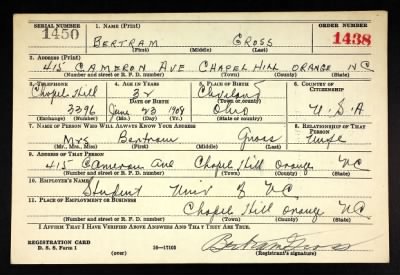 SERIAL NUMBER 1. NAME (Print) ORDER NUMBER
1450 BERTRAM GROSS 1438
(First) (Middle) (Last)
2. ADDRESS (Print)
415 CAMERON AVE CHAPEL HILL ORANGE NC
(Number and street or R. F. D. number) (Town) (County) (State)
3. TELEPHONE 4. AGE IN YEARS 5. PLACE OF BIRTH 6. COUNTRY OF CITIZENSHIP
Chapel Hill 32 Cleveland
DATE OF BIRTH (Town or county)
3396 June 23 1908 Ohio U-S-A
(Exchange) (Number) (Mo.) (Day) (Yr.) (State or country)
7. NAME OF PERSON WHO WILL ALWAYS KNOW YOUR ADDRESS 8. RELATIONSHIP OF THAT PERSON
Mrs Bertram Gross Wife
(Mr., Mrs., Miss) (First) (Middle) (Last)
9. ADDRESS OF THAT PERSON
415 Cameron Ave Chapel Hill Orange NC
(Number and street or R. F. D. number) (Town) (County) (State)
10. EMPLOYER'S NAME
Student Univ of NC
11. PLACE OF EMPLOYMENT OR BUSINESS
Chapel Hill Orange NC
(Number and street or R. F. D. number) (Town) (County) (State)
I AFFIRM THAT I HAVE VERIFIED ABOVE ANSWERS AND THAT THEY ARE TRUE.
REGISTRATION CARD
D. S. S. Form 1 (over) 16—17105 Bertram Gross
(Registrant's signature)